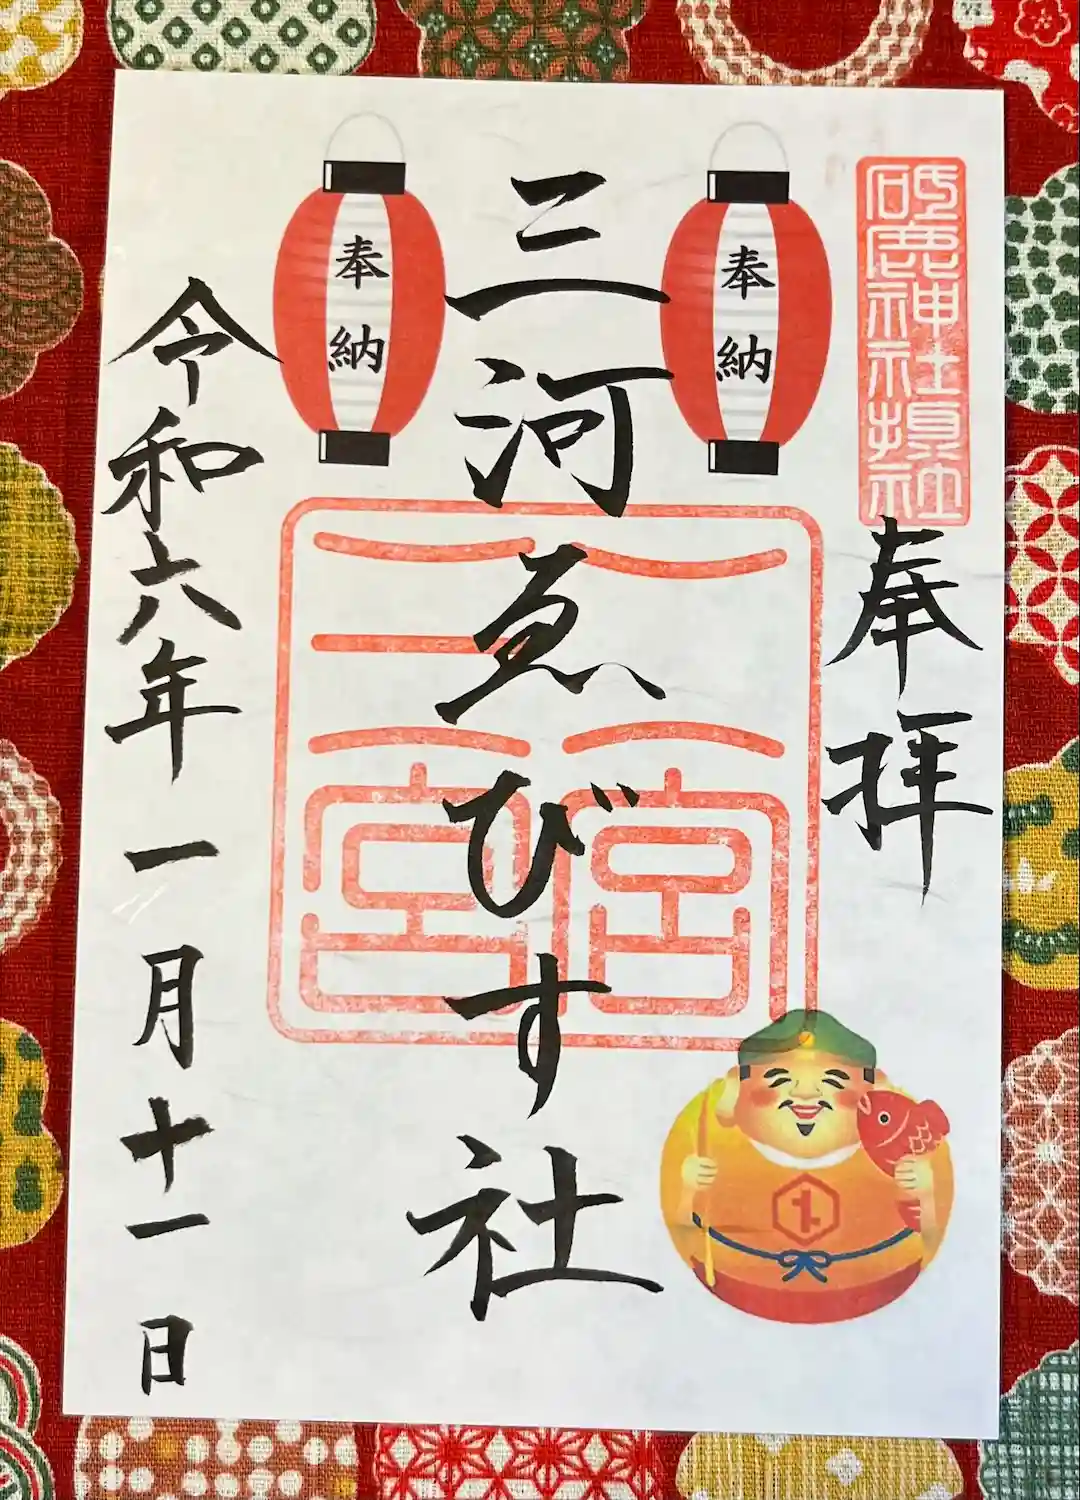 砥鹿神社摂社
奉拝
奉納
三河ゑびす社
奉納
令和六年一月十一日